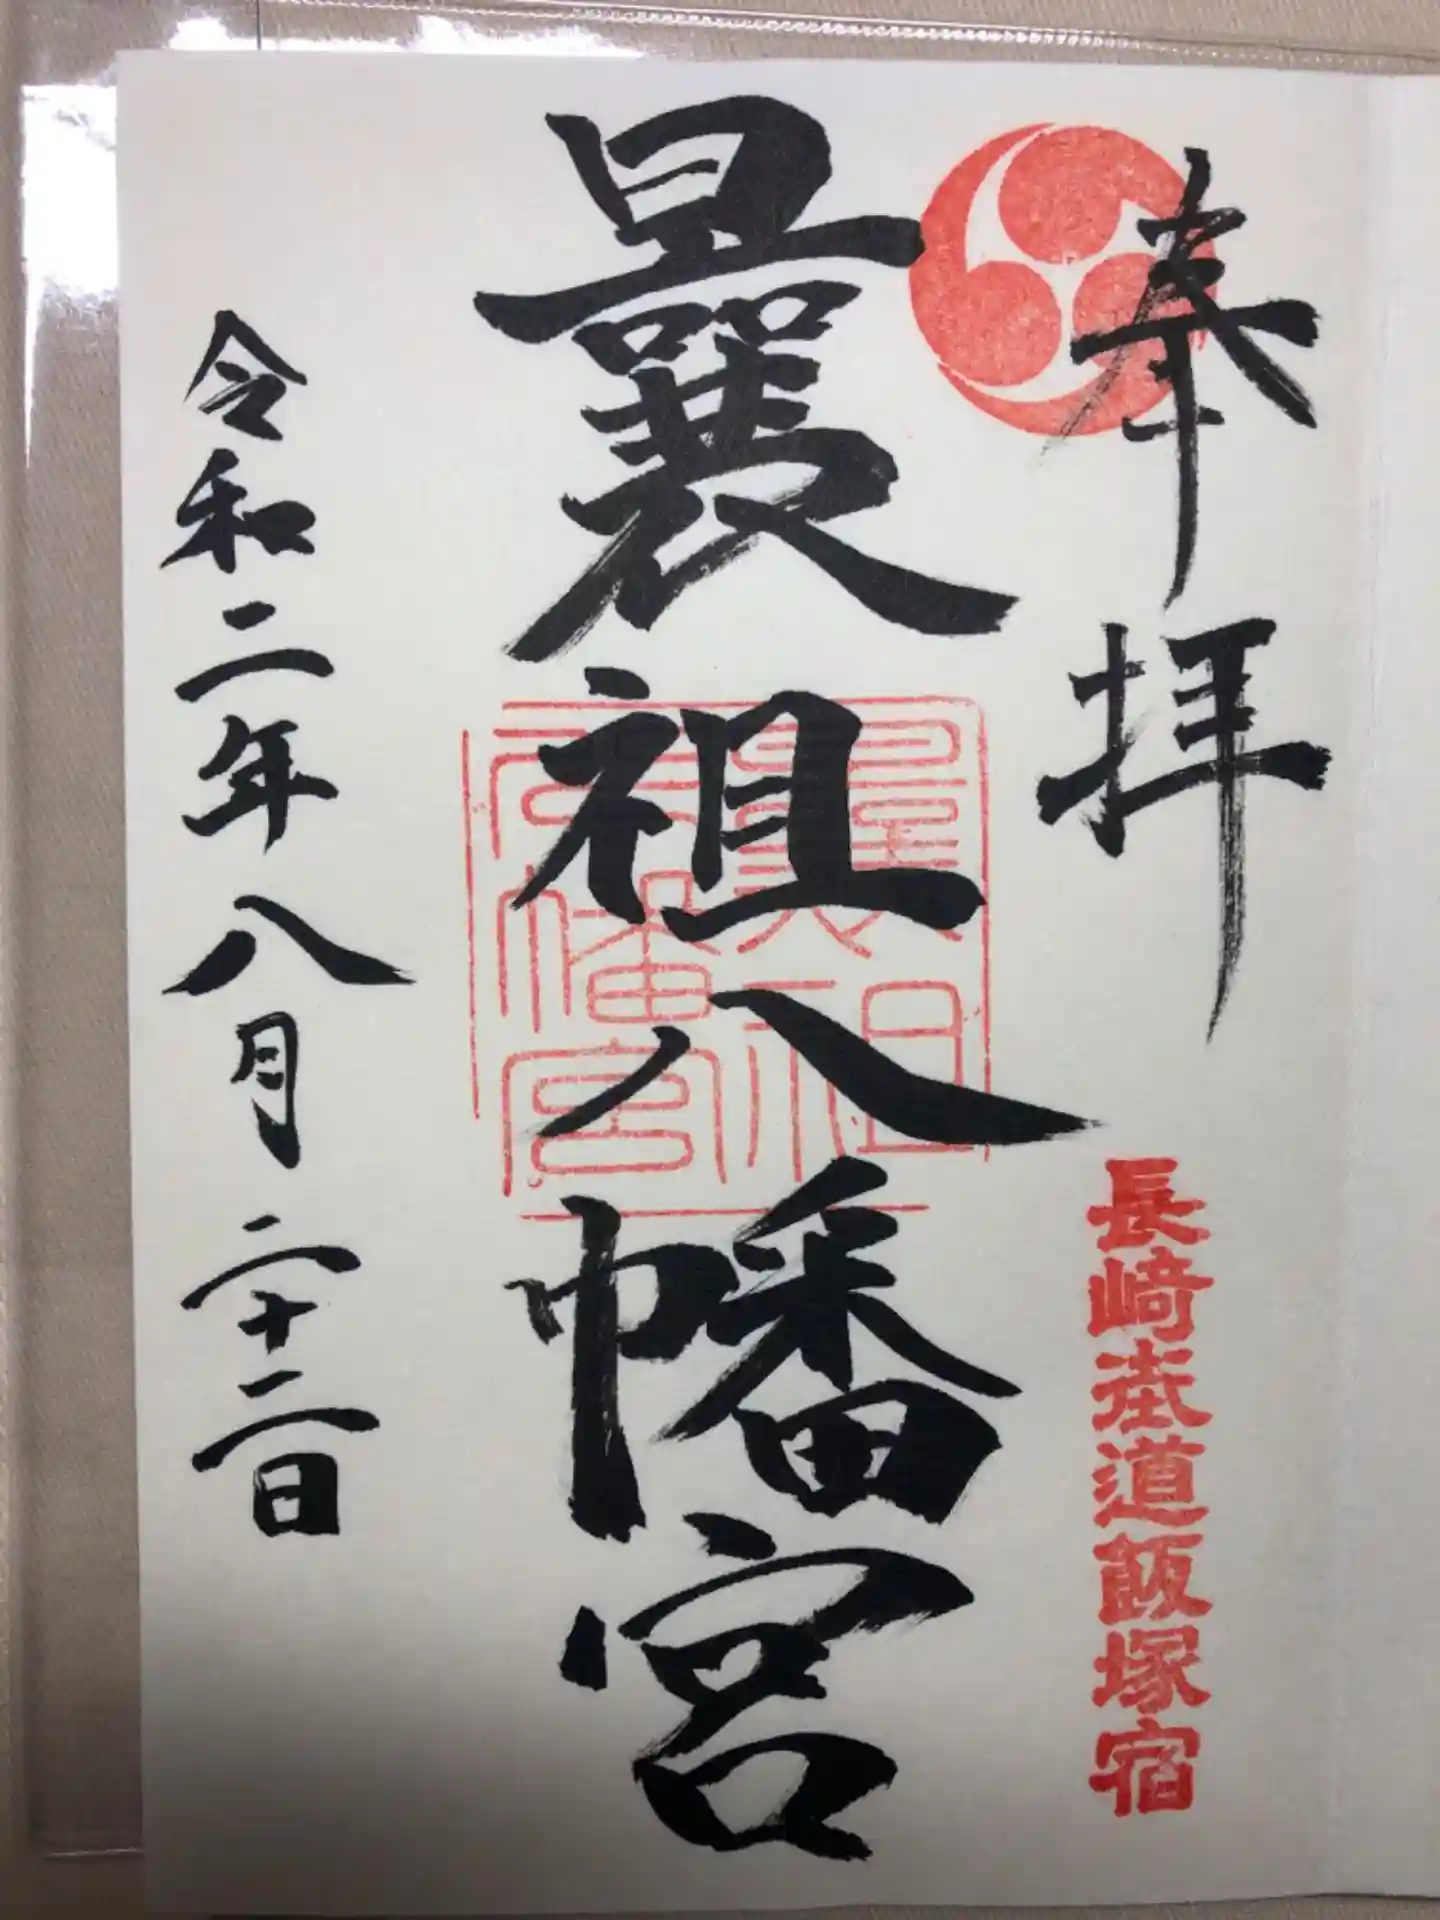 奉拝
長﨑街道飯塚宿
曩祖八幡宮
曩祖
八幡宮
令和二年八月二十二日